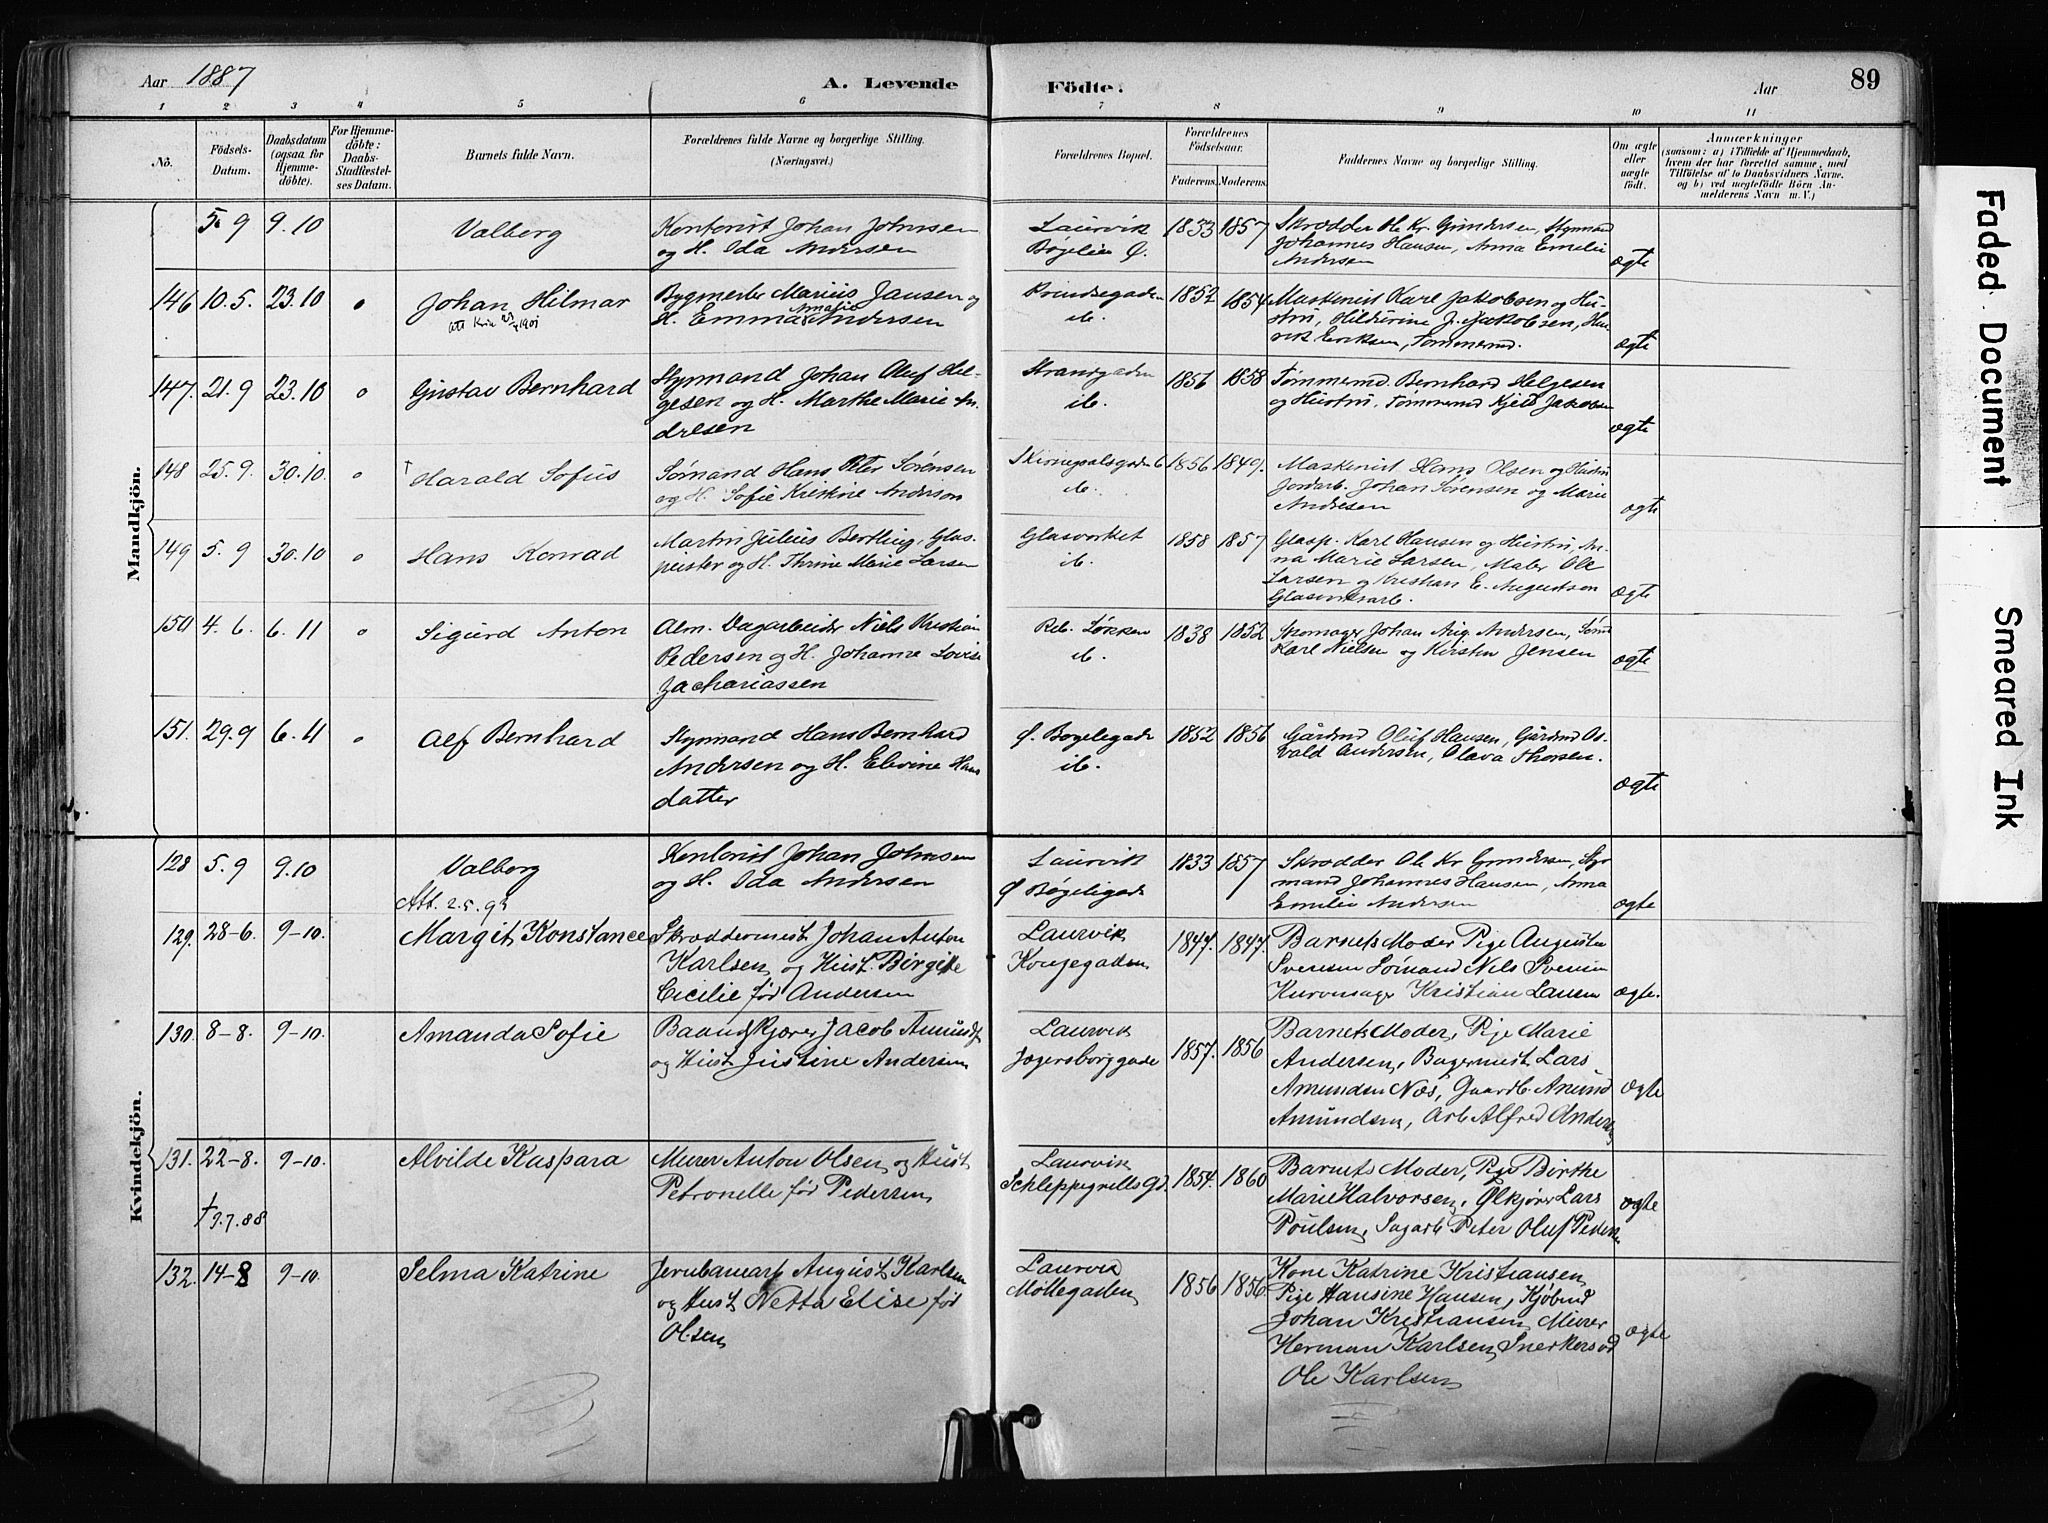 Aar 1887
A. Levende Födte.
Aar
89
1 2 3 4 5 6 7 8 9 10 11
No.
Födsels-Datum.
Daabsdatum (ogsaa for Hjemme-döbte).
For Hjemme-döbte: Daabs-Stadfæstel-ses Datum.
Barnets fulde Navn.
Forældrenes fulde Navne og borgerlige Stilling.
(Næringsvei.)
Forældrenes Bopæl.
Forældrenes Födselsaar.
Faderens. Moderens.
Faddernes Navne og borgerlige Stilling.
Om ægte eller uægte födt.
Anmærkninger
(saasom: a) i Tilfælde af Hjemmedaab,
hvem der har forrettet samme, med
Tilföielse af to Daabsvidners Navne.
og b) ved uægtefödte Börn An-
melderens Navn m. V.)
Mandkjön.
5. 9 9. 10 Valborg
Kontorist Johan Johnsen
og H. Ida Andersen
Laurvik
Bøgelien Ø.
1833 1857
Skrædder Ole Kr. Gundersen, Stymand
Johannes Hansen, Anna Emelie
Andersen
ægte
146 10. 5. 23. 10 o Johan Hilmar
Bygmester Marius Jansen og
H. Emma Amalie Andersen
Prindsegaden
ib.
1852 1854
Maskinist Karl Jakobsen og Hu-
stru, Hildurine J. Jakobsen, Hen-
rik Eriksen, Tømmermd.
ægte
147. 21. 9 23. 10 o Gustav Bernhard
Stymand Johan Oluf Hel-
gesen og H. Marthe Marie An-
dresen
Strandgaden
ib.
1856 1858
Tømmermd Bernhard Helgesen
og Hustru, Tømmermd Kjell Jakobsen
ægte
148 25. 9. 30. 10. o † Harald Sofus
Sømand Hans Peter Sørensen
og H. Sofie Kristine Anderson
ib.
1856 1849.
Maskinist Hans Olsen og Hustru
Jordarb. Johan Sørensen og Marie
Andresen
ægte
149 5. 9 30. 10 o Hans Konrad
Martin Julius Bertling, Glas-
puster og H. Thrine Marie Larsen
Glasverket
ib.
1858 1857
Glasp. Karl Hansen og Hustru, An-
na Marie Larsen, Maler Ole
Larsen og Kristian E. Augustson
Glasverksarb.
ægte
150 4. 6. 6. 11 o Sigurd Anton
Alm. Dagarbeider Niels Kristian
Pedersen og H. Johanne Lovise
Zachariassen
Reb. Løkken
ib.
1838 1852
Skomager Johan Aug. Andersen, Sømd
Karl Nielsen og Kirsten Jensen
ægte
151. 29. 9 6. 11 o Alf Bernhard
Stymand Hans Bernhard
Andersen og H. Elevine Hans
datter
Ø. Bøgelegade
ib.
1852 1856
Gårdmd Oluf Hansen, Gårdmd Os-
vald Andersen, Olava Thorsen.
ægte
Kvindekjön.
128 5. 9 9. 10 Valborg
Att. 2.5.92
Kontorist Johan Johnsen
og H. Ida Andersen
Laurvik
Ø Bøgeligade
1833 1857
Skrædder Ole Kr Gundersen, Sty-
mand Johannes Hansen, Anna
Emilie Andersen
ægte
129. 28-6. 9-10. Margit Konstance
Skræddermest Johan Anton
Karlsen og Hust. Birgitte
Cicilie før Andersen
Laurvik
Kongegaden
1847. 1847.
Barnets Moder Pige Auguste
Svensen Sømand Nils Svensen
Kurvmager Kristian Larsen
ægte.
130. 8-8. 9-10. Amanda Sofie
Baandskjærer Jacob Amunds
og Hust Justine Andersen
Laurvik
Jægersborggade
1857. 1856
Barnets Moder, Pige Marie
Andersen, Bagermest. Lars
Amundsen Næs, Gaardb Anund
Amundsen, Arb Alfred Anders
ægte
131. 22-8. 9-10. Alvilde Kaspara
† 9.7.88
Murer Anton Olsen og Hust
Petronelle før Pedersen
Laurvik
Schleppegrells Gd.
1854. 1860
Barnets Moder, Pige Birthe
Marie Halvorsen, Ølkjører Lars
Poulsen, Sagarb Peter Oluf Peders
ægte
132. 14-8 9-10. Selma Katrine
Jernbanearb August Karlsen
og Hust Netta Elise før
Olsen
Laurvik
Møllegaden
1856 1856
Kone Katrine Kristiansen
Pige Hansine Hansen, Kjøbmd
Johan Kristiansen Murer
Herman Karlsen, Snerkersvd
Ole Karlsen
ægte
Faded Document
Smeared Ink